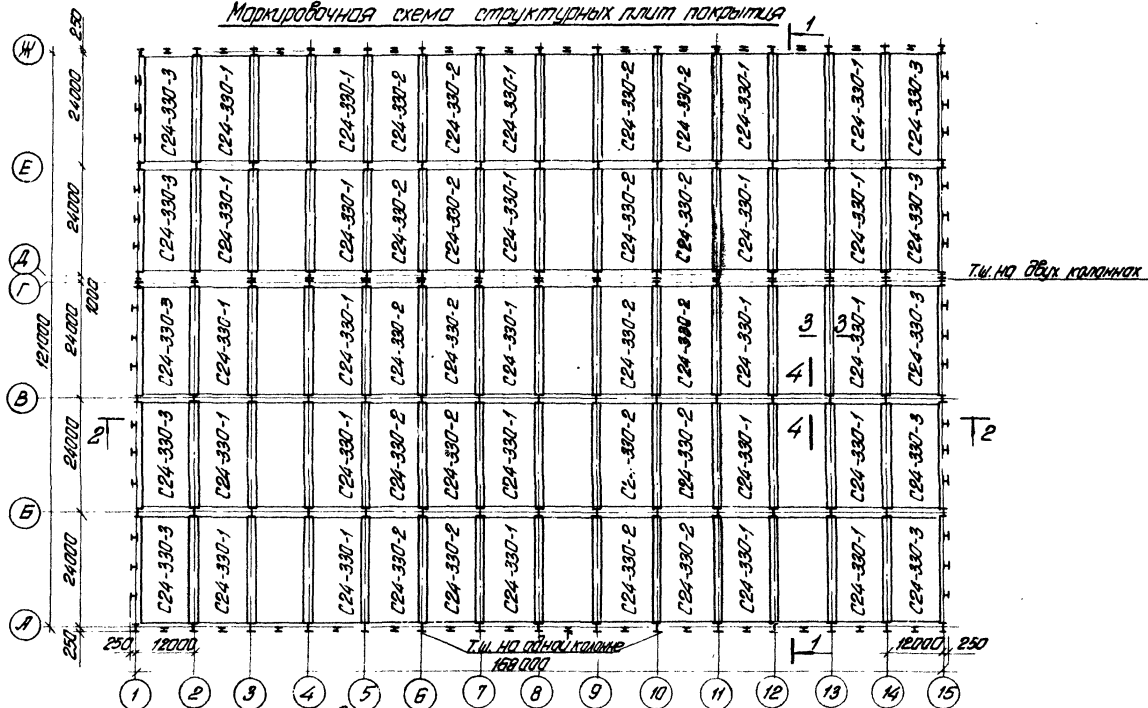 Маркировочная схема структурных плит покрытия
1
250
Ж
24000
С24-330-3 С24-330-1 С24-330-1 С24-330-2 С24-330-2 С24-330-1 С24-330-2 С24-330-2 С24-330-1 С24-330-1 С24-330-3
Е
24000
С24-330-3 С24-330-1 С24-330-1 С24-330-2 С24-330-2 С24-330-1 С24-330-2 С24-330-2 С24-330-1 С24-330-1 С24-330-3
Д
1000
Т.ш. на двух колоннах
Г
121000
24000
С24-330-3 С24-330-1 С24-330-1 С24-330-2 С24-330-2 С24-330-1 С24-330-2 С24-330-2 С24-330-1 С24-330-1 С24-330-3
3 3
4
В
2 4 2
24000
С24-330-3 С24-330-1 С24-330-1 С24-330-2 С24-330-2 С24-330-1 -330-2 С24-330-2 С24-330-1 С24-330-1 С24-330-3
Б
24000
С24-330-3 С24-330-1 С24-330-1 С24-330-2 С24-330-2 С24-330-1 С24-330-2 С24-330-2 С24-330-1 С24-330-1 С24-330-3
А
250
250 12000 Т.ш. на одной колонне 1 12000 250
168000
1 2 3 4 5 6 7 8 9 10 11 12 13 14 15